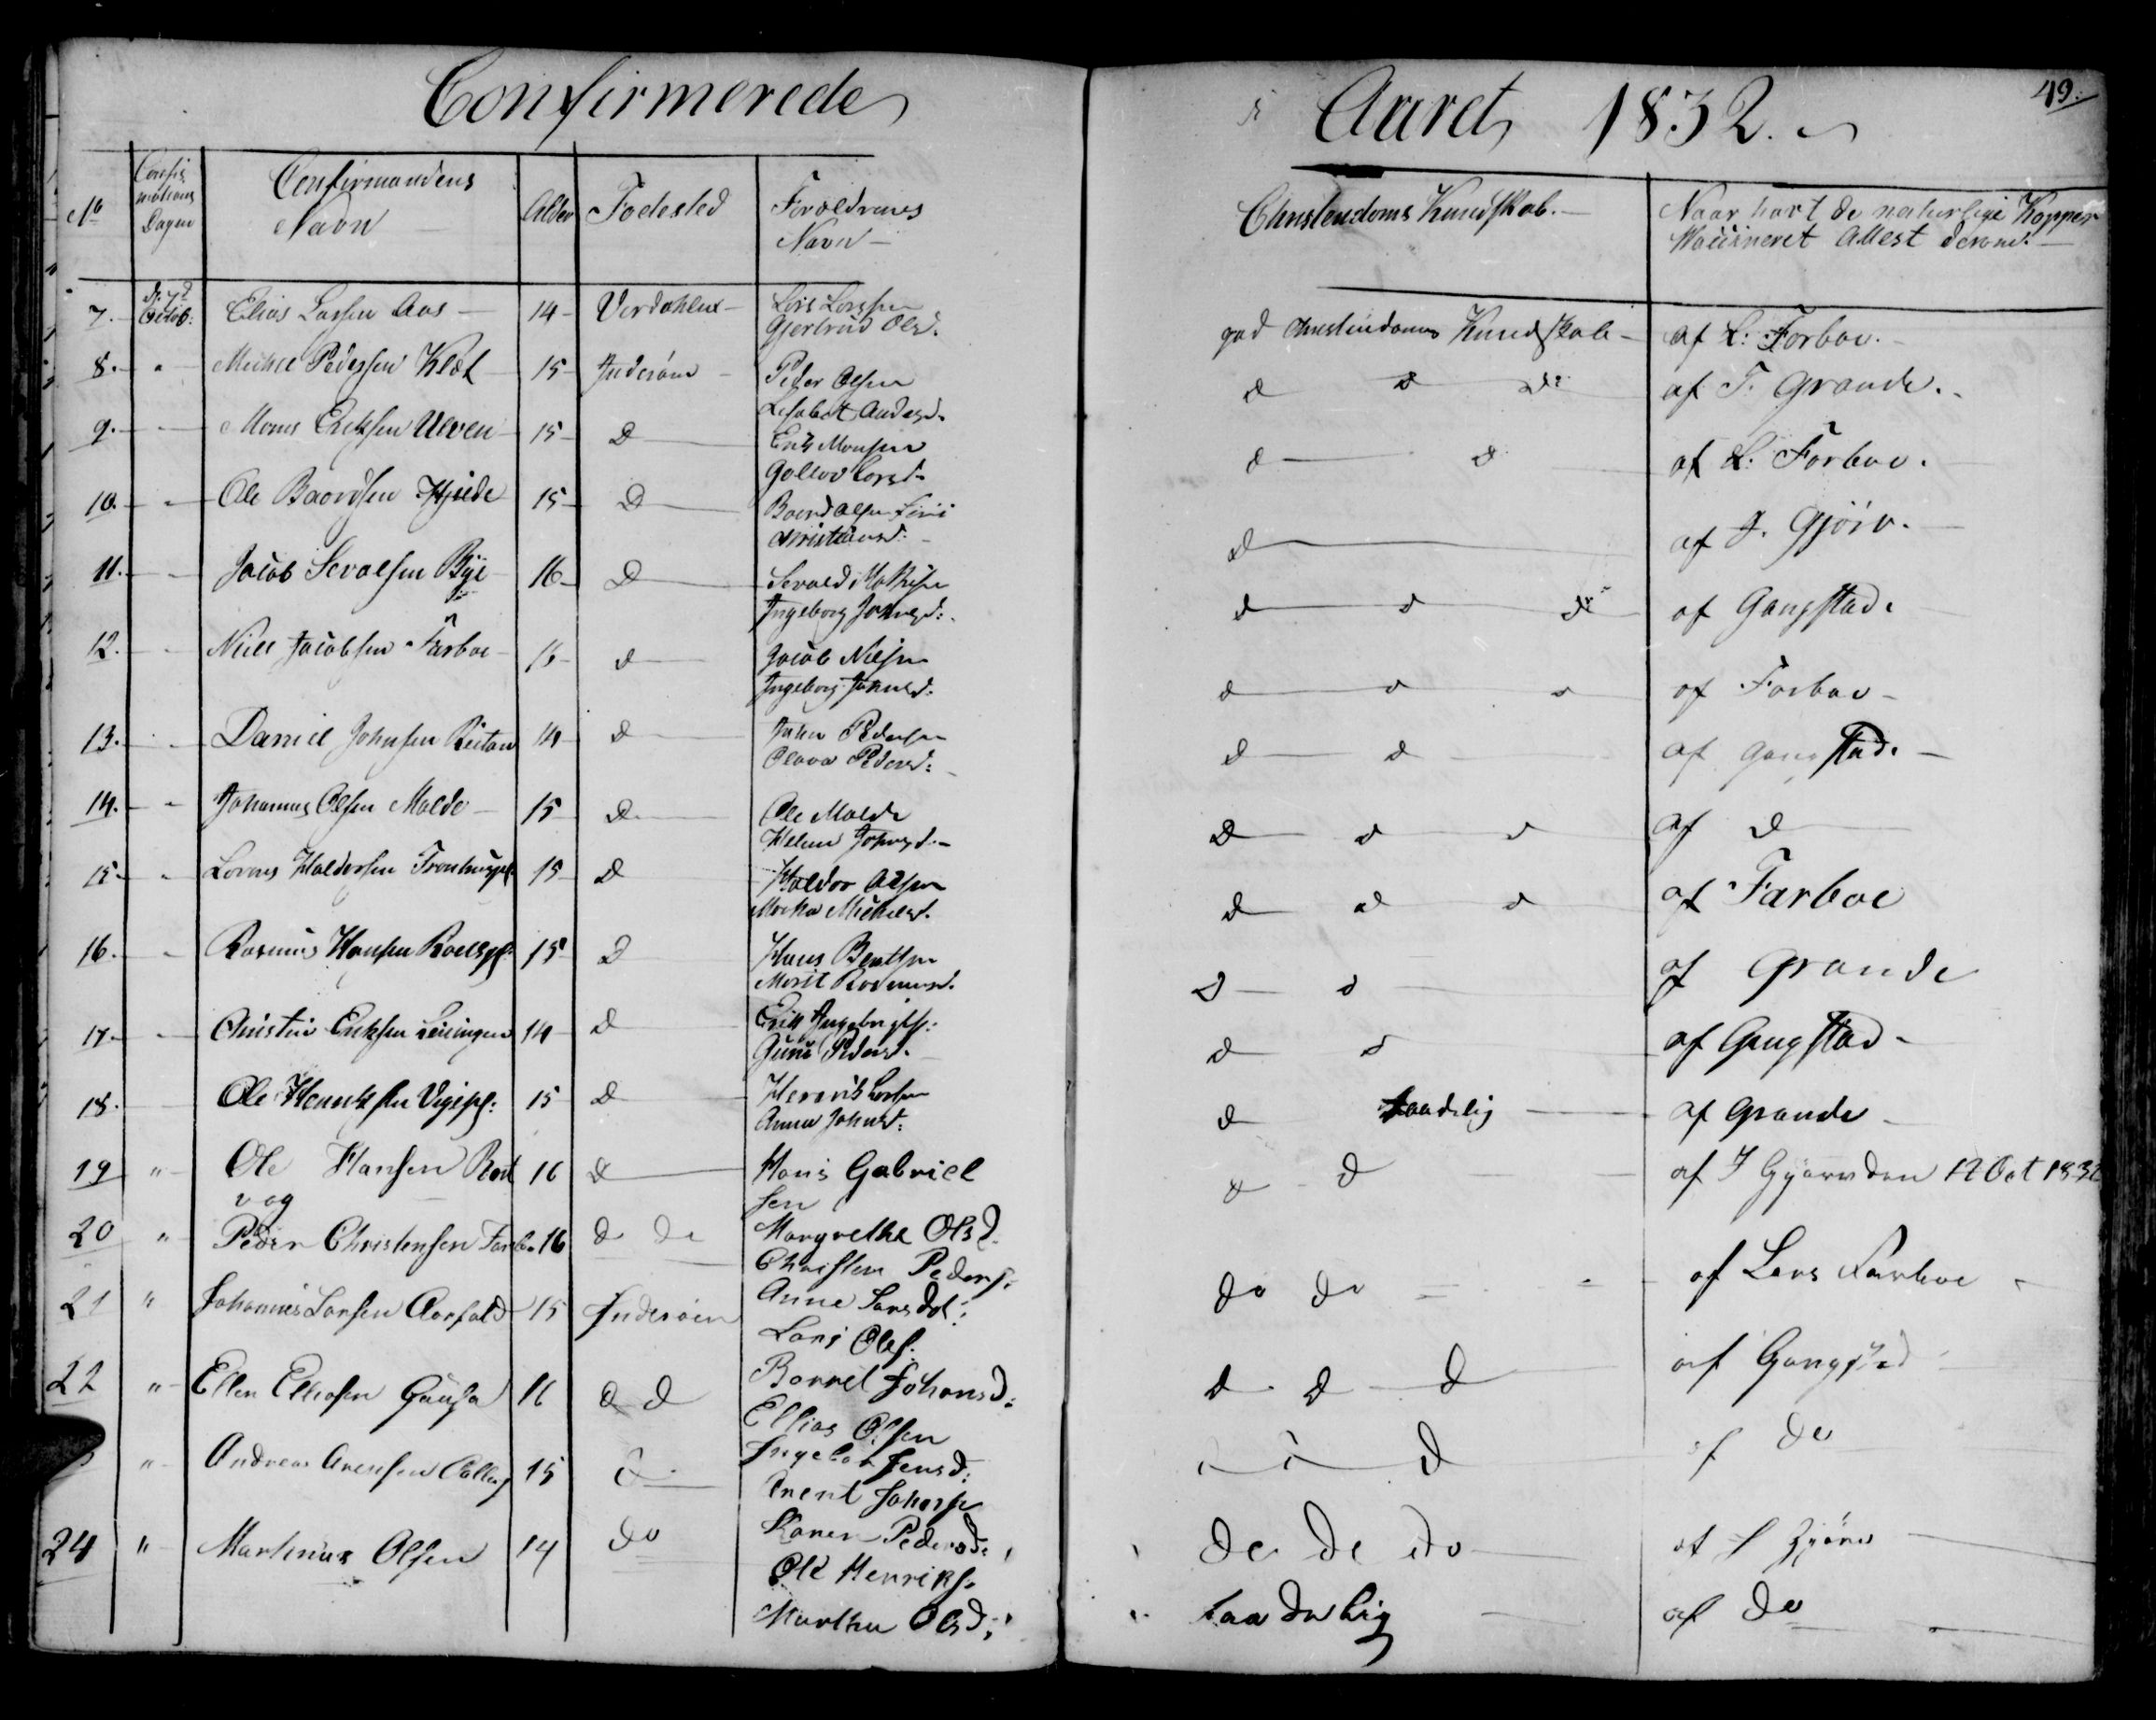 Confirmerede
i Aaret 1832.
49.
No
Confir
mations
Dagen
Confirmandens
Navn
Alder
Fødested
Foraldrenes
Navn
Christendoms Kundskab.
Naar havt de naturlige Kopper
Waccineret Attest derom.
7. d. 7d Octob: Elias Larsen Aas 14 Verdahlen Lars Larssen
Gjertrud Olsd. god Christendoms Kundskab af L: Farboe.
8. " Michel Pedersen Klæt 15 Inderøen Peder Olsen
Andersd. d d do af T. Grande.
9. " Mons Eriksen Ulven 15 D Erik Monsen
Gollov Larsd. d d af L: Farboe.
10. " Ole Baardsen Hjelde 15 D Baard Olsen
Christiansd. d af J. Gjörv.
11. " Jacob Sevalsen Bÿe 16 D Sevald
Ingeborg Johnsd. d d do af Gangstad.
12. " Niels Jacobsen Farboe 15 d Jacob Nielsen
Ingeborg Johnsd. d d d af Farboe
13. " Daniel Johnsen Reitan 14 d John Pedersen
Olava Pedersd: d d af Gangstad.
14. " Johannes Olsen Molde 15 D Ole Molde
Helene Johnsd. d d d af d
15. " Lorens Haldorsen 15 d Haldor Olsen
Michelsd. d d d af Farboe
16. " Rasmus Hansen 15 D Hans Bentsen
Morit Rasmusd. d d af Grande
17. " Christen Eriksen 14 d Erik Ingebrigts:
Pedersd. d d af Gangstad
18. Ole Henriksen 15 d Henrik Larsen
Anna Johnsd: d taadelig af Grande
19 " Ole Hansen Rost
vog 16 d Hans Gabriel
sen
Margrethe Olsd. d d af J Gjørv den 12 Oct 1832
20 " Peder Christensen Farbo 16 do do Christen Peders.
Anne Larsdot: do do af Lars Farboe
21 " Johannes Larsen Aasfald 15 Inderøen Lars Ols:
Borrel Johansd: d d d af Gangstad
22 " Ellen Elliasen 16 d d Ellias Olsen
Jensd: d d d af do
" Andreas Arentsen 15 d Arent Johnsen
Karen Pedersd: do do do af J Gjørv
24 " Martinus Olsen 14 do Ole Henriks.
Martha Olsd: taadelig af do